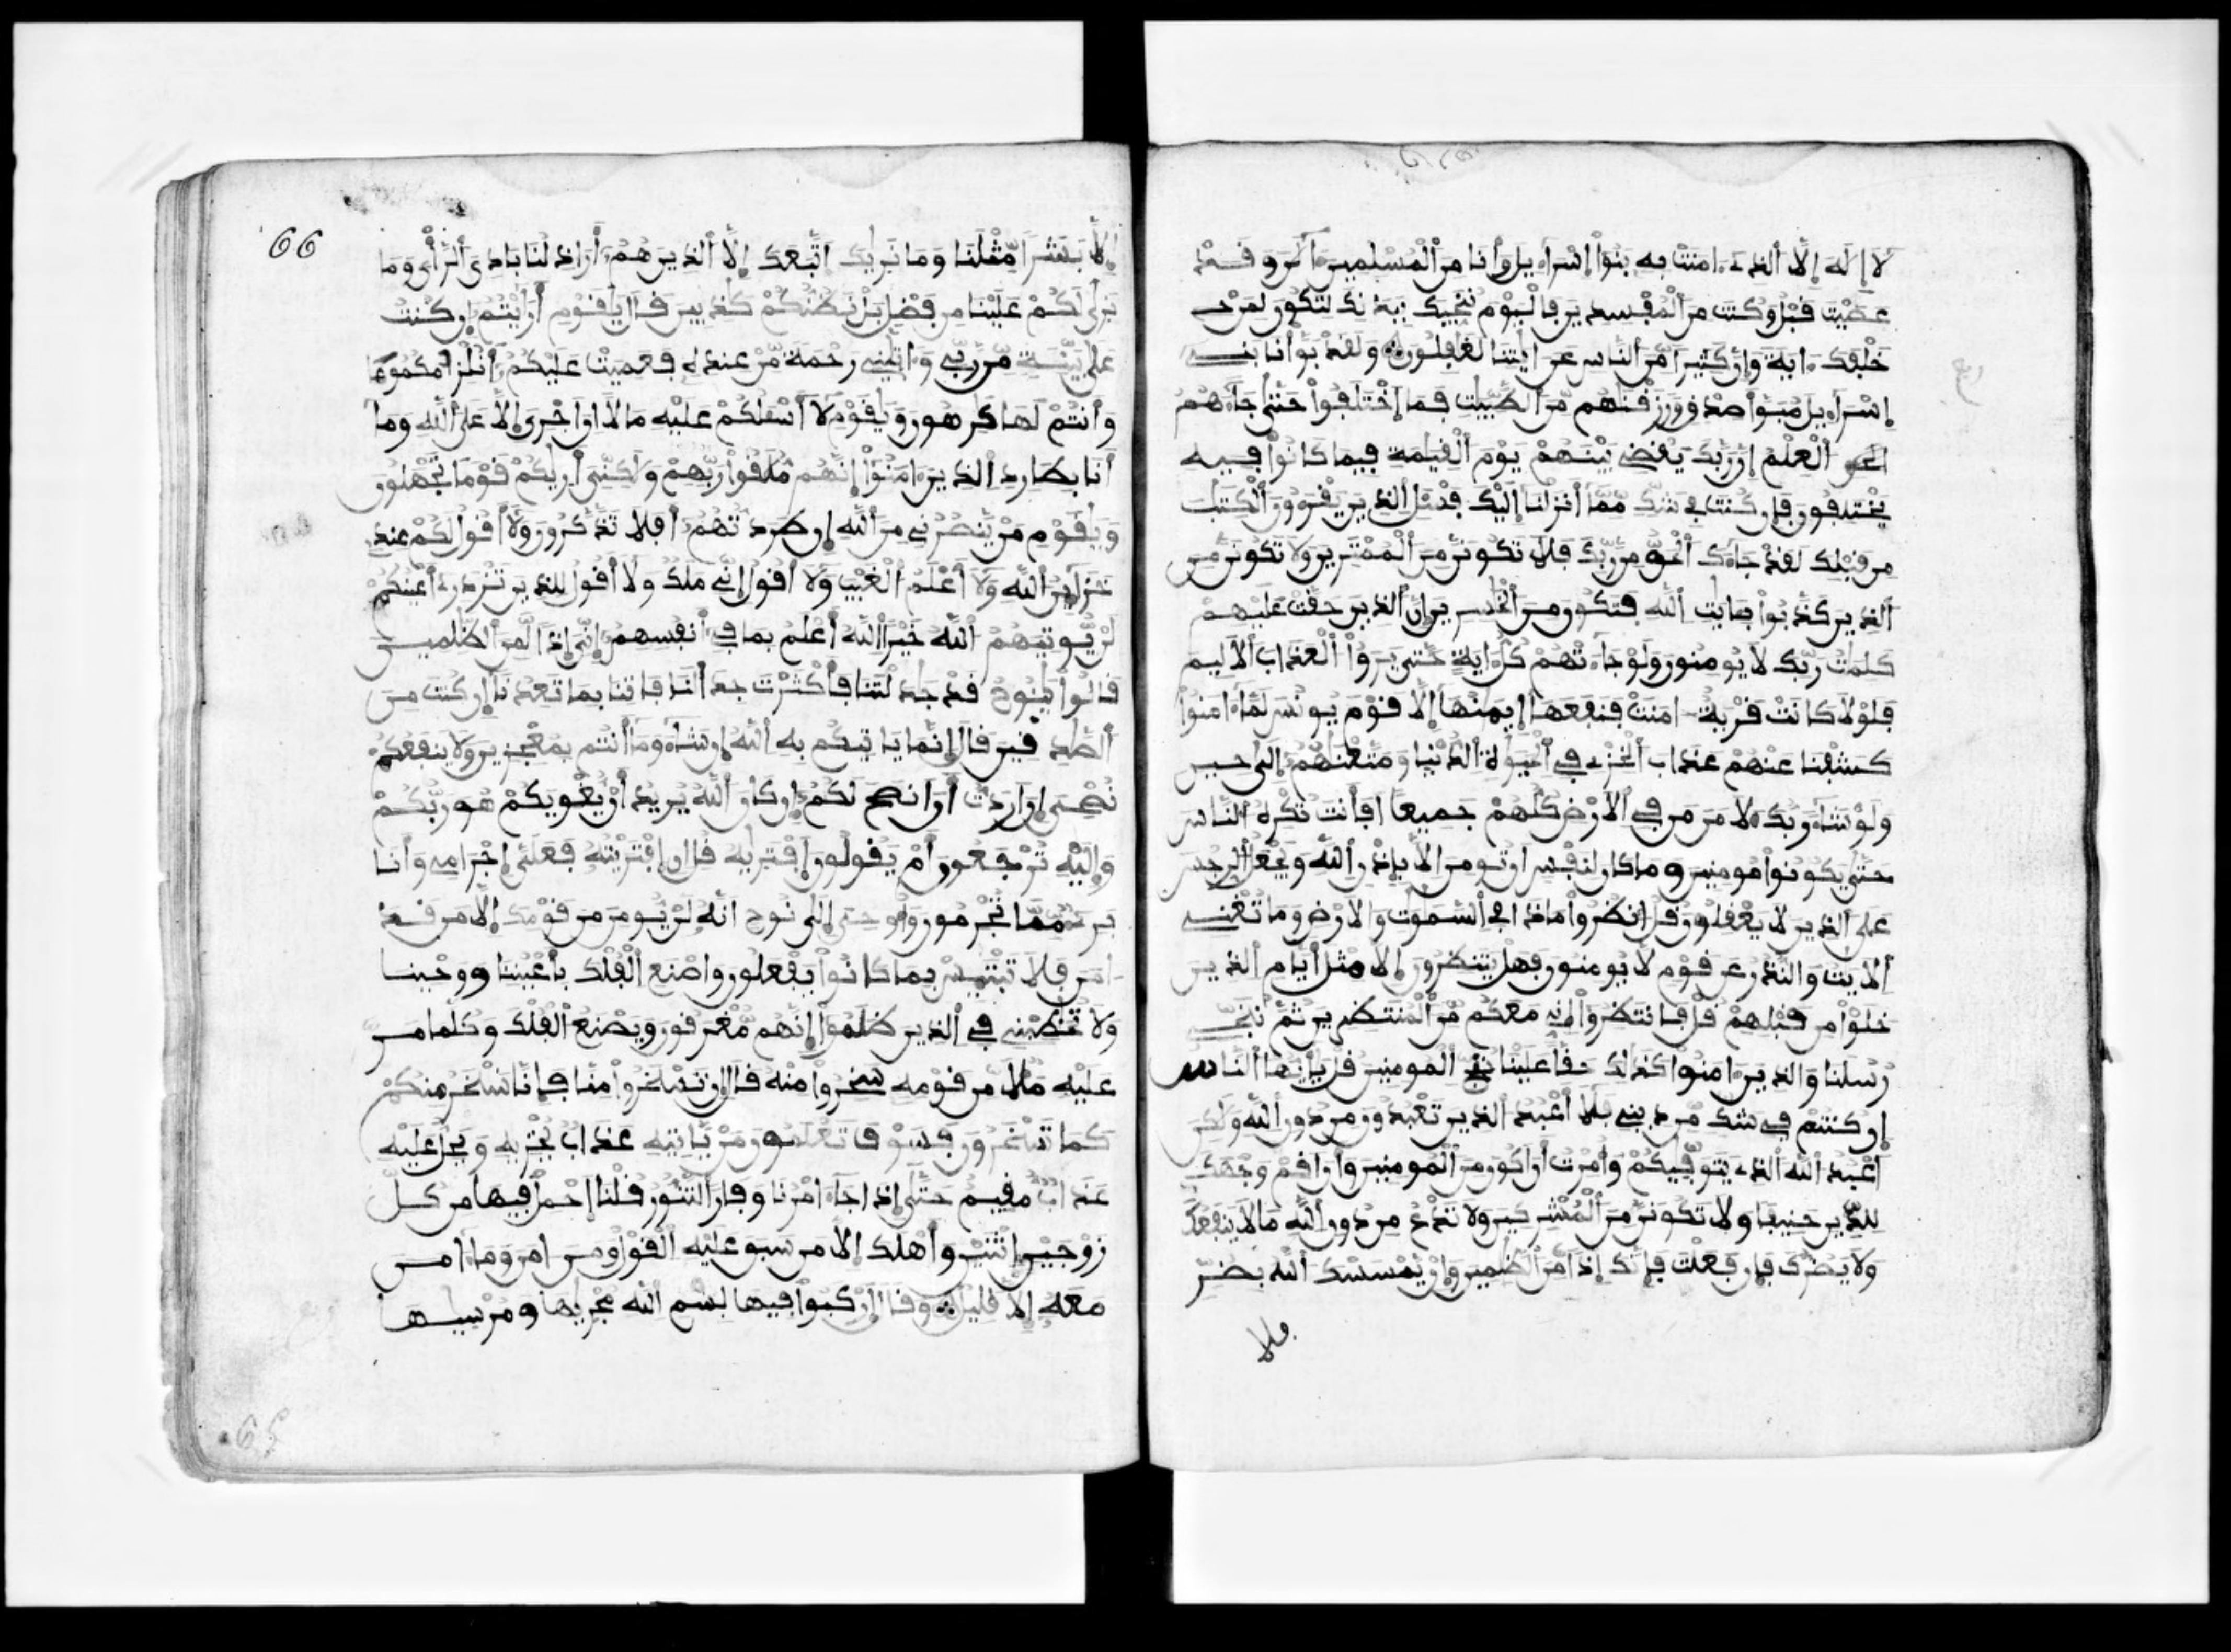 لَا إِلَهَ إِلَّا ٱلذِے ءَامَنَتْ بِهِ بَنُوٓاْ إِسْرَآءِيلَ وَأَنَا مِنَ ٱلْمُسْلِمِينَ ءَآلَنَ وَقَدْ
عَصَيْتَ قَبْلُ وَكُنتَ مِنَ ٱلْمُفْسِدِينَ فَالْيَوْمَ نُنَجِّيكَ بِبَدَنِكَ لِتَكُونَ لِمَنْ
خَلْفَكَ ءَايَةً وَإِنَّ كَثِيراً مِّنَ ٱلنَّاسِ عَنَ ايَٰتِنَا لَغَٰفِلُونَ وَلَقَدْ بَوَّأْنَا بَنِے
إِسْرَآءِيلَ مُبَوَّأَ صِدْقٍ وَرَزَقْنَٰهُم مِّنَ ٱلطَّيِّبَٰتِ فَمَا ٱخْتَلَفُواْ حَتَّىٰ جَآءَهُمُ
ٱلْعِلْمُ إِنَّ رَبَّكَ يَقْضِے بَيْنَهُمْ يَوْمَ ٱلْقِيَٰمَةِ فِيمَا كَانُواْ فِيهِ
يَخْتَلِفُونَ فَإِن كُنتَ فِے شَكٍّ مِّمَّا أَنزَلْنَا إِلَيْكَ فَسْـَٔلِ ٱلذِينَ يَقْرَءُونَ ٱلْكِتَٰبَ
مِن قَبْلِكَ لَقَدْ جَآءَكَ ٱلْحَقُّ مِن رَّبِّكَ فَلَا تَكُونَنَّ مِنَ ٱلْمُمْتَرِينَ وَلَا تَكُونَنَّ مِنَ
ٱلذِينَ كَذَّبُواْ بِـَٔايَٰتِ ٱللَّهِ فَتَكُونَ مِنَ ٱلْخَٰسِرِينَ إِنَّ ٱلذِينَ حَقَّتْ عَلَيْهِمْ
كَلِمَٰتُ رَبِّكَ لَا يُومِنُونَ وَلَوْ جَآءَتْهُمْ كُلُّ ءَايَةٍ حَتَّىٰ يَرَوُاْ ٱلْعَذَابَ ٱلْأَلِيمَ
فَلَوْلَا كَانَتْ قَرْيَةٌ ـ امَنَتْ فَنَفَعَهَا إِيمَٰنُهَا إِلَّا قَوْمَ يُونُسَ لَمَّا ءَامَنُواْ
كَشَفْنَا عَنْهُمْ عَذَابَ ٱلْخِزْىِ فِے ٱلْحَيَوٰةِ ٱلدُّنْيَا وَمَتَّعْنَٰهُمْ إِلَىٰ حِينٍ
وَلَوْ شَآءَ رَبُّكَ لَأٓمَنَ مَن فِے ٱلْأَرْضِ كُلُّهُمْ جَمِيعاً اَفَأَنتَ تُكْرِهُ ٱلنَّاسَ
حَتَّىٰ يَكُونُواْ مُومِنِينَ وَمَا كَانَ لِنَفْسٍ اَن تُومِنَ إِلَّا بِإِذْنِ ٱللَّهِ وَيَجْعَلُ ٱلرِّجْسَ
عَلَى ٱلذِينَ لَا يَعْقِلُونَ قُلُ ٱنظُرُواْ مَاذَا فِے ٱلسَّمَٰوَٰتِ وَالْأَرْضِ وَمَا تُغْنِے
ٱلْأٓيَٰتُ وَالنُّذُرُ عَن قَوْمٍ لَّا يُومِنُونَ فَهَلْ يَنتَظِرُونَ إِلَّا مِثْلَ أَيَّامِ ٱلذِينَ
خَلَوْاْ مِن قَبْلِهِمْ قُلْ فَانتَظِرُواْ إِنِّے مَعَكُم مِّنَ ٱلْمُنتَظِرِينَ ثُمَّ نُنَجِّے
رُسُلَنَا وَالذِينَ ءَامَنُواْ كَذَٰلِكَ حَقّاً عَلَيْنَا نُنَجِّ ٱلْمُومِنِينَ قُلْ يَٰأَيُّهَا ٱلنَّاسُ
إِن كُنتُمْ فِے شَكٍّ مِّن دِينِے فَلَا أَعْبُدُ ٱلذِينَ تَعْبُدُونَ مِن دُونِ ٱللَّهِ وَلَٰكِنَ
اَعْبُدُ ٱللَّهَ ٱلذِے يَتَوَفَّيٰكُمْ وَأُمِرْتُ أَنَ اَكُونَ مِنَ ٱلْمُومِنِينَ وَأَنَ اَقِمْ وَجْهَكَ
لِلدِّينِ حَنِيفاً وَلَا تَكُونَنَّ مِنَ ٱلْمُشْرِكِينَ وَلَا تَدْعُ مِن دُونِ ٱللَّهِ مَا لَا يَنفَعُكَ
وَلَا يَضُرُّكَ فَإِن فَعَلْتَ فَإِنَّكَ إِذاً مِّنَ ٱلظَّٰلِمِينَ وَإِنْ يَّمْسَسْكَ ٱللَّهُ بِضُرٍّ
فلا
ربع
66
إِلَّا بَشَراً مِّثْلَنَا وَمَا نَرَيٰكَ ٱتَّبَعَكَ إِلَّا ٱلذِينَ هُمُ أَرَاذِلُنَا بَادِىَ ٱلرَّأْىِ وَمَا
نَرَىٰ لَكُمْ عَلَيْنَا مِن فَضْلٍ بَلْ نَظُنُّكُمْ كَٰذِبِينَ قَالَ يَٰقَوْمِ أَرَٰيْتُمُ إِن كُنتُ
عَلَىٰ بَيِّنَةٍ مِّن رَّبِّے وَءَاتَيٰنِے رَحْمَةً مِّنْ عِندِهِ فَعَمِيَتْ عَلَيْكُمُ أَنُلْزِمُكُمُوهَا
وَأَنتُمْ لَهَا كَٰرِهُونَ وَيَٰقَوْمِ لَا أَسْـَٔلُكُمْ عَلَيْهِ مَالاً اِنَ اَجْرِىَ إِلَّا عَلَى ٱللَّهِ وَمَا
أَنَا بِطَارِدِ ٱلذِينَ ءَامَنُواْ إِنَّهُم مُّلَٰقُواْ رَبِّهِمْ وَلَٰكِنِّىَ أَرَيٰكُمْ قَوْماً تَجْهَلُونَ
وَيَٰقَوْمِ مَنْ يَّنصُرُنِے مِنَ ٱللَّهِ إِن طَرَدتُّهُمُ أَفَلَا تَذَّكَّرُونَ وَلَا أَقُولُ لَكُمْ عِندِے
خَزَآئِنُ ٱللَّهِ وَلَا أَعْلَمُ ٱلْغَيْبَ وَلَا أَقُولُ إِنِّے مَلَكٌ وَلَا أَقُولُ لِلذِينَ تَزْدَرِے أَعْيُنُكُمْ
لَنْ يُّوتِيَهُمُ ٱللَّهُ خَيْراً ٱللَّهُ أَعْلَمُ بِمَا فِے أَنفُسِهِمُ إِنِّىَ إِذاً لَّمِنَ ٱلظَّٰلِمِينَ
قَالُواْ يَٰنُوحُ قَدْ جَٰدَلْتَنَا فَأَكْثَرْتَ جِدَٰلَنَا فَاتِنَا بِمَا تَعِدُنَا إِن كُنتَ مِنَ
ٱلصَّٰدِقِينَ قَالَ إِنَّمَا يَاتِيكُم بِهِ ٱللَّهُ إِن شَآءَ وَمَا أَنتُم بِمُعْجِزِينَ وَلَا يَنفَعُكُمْ
نُصْحِىَ إِنَ اَرَدتُّ أَنَ اَنصَحَ لَكُمُ إِن كَانَ ٱللَّهُ يُرِيدُ أَنْ يُّغْوِيَكُمْ هُوَ رَبُّكُمْ
وَإِلَيْهِ تُرْجَعُونَ أَمْ يَقُولُونَ ٱفْتَرَيٰهُ قُلِ إِنِ ٱفْتَرَيْتُهُ فَعَلَىَّ إِجْرَامِے وَأَنَا
بَرِےءٌ مِّمَّا تُجْرِمُونَ وَأُوحِىَ إِلَىٰ نُوحٍ اَنَّهُ لَنْ يُّومِنَ مِن قَوْمِكَ إِلَّا مَن قَدَ
ـ امَنَ فَلَا تَبْتَئِسْ بِمَا كَانُواْ يَفْعَلُونَ وَاصْنَعِ ٱلْفُلْكَ بِأَعْيُنِنَا وَوَحْيِنَا
وَلَا تُخَٰطِبْنِے فِے ٱلذِينَ ظَلَمُواْ إِنَّهُم مُّغْرَقُونَ وَيَصْنَعُ ٱلْفُلْكَ وَكُلَّمَا مَرَّ
عَلَيْهِ مَلَأٌ مِّن قَوْمِهِ سَخِرُواْ مِنْهُ قَالَ إِن تَسْخَرُواْ مِنَّا فَإِنَّا نَسْخَرُ مِنكُمْ
كَمَا تَسْخَرُونَ فَسَوْفَ تَعْلَمُونَ مَنْ يَّاتِيهِ عَذَابٌ يُخْزِيهِ وَيَحِلُّ عَلَيْهِ
عَذَابٌ مُّقِيمٌ حَتَّىٰ إِذَا جَآءَ امْرُنَا وَفَارَ ٱلتَّنُّورُ قُلْنَا ٱحْمِلْ فِيهَا مِن كُلِّ
زَوْجَيْنِ ٱثْنَيْنِ وَأَهْلَكَ إِلَّا مَن سَبَقَ عَلَيْهِ ٱلْقَوْلُ وَمَنَ ـ امَنَ وَمَا ءَامَنَ
مَعَهُ إِلَّا قَلِيلٌ وَقَالَ ٱرْكَبُواْ فِيهَا بِسْمِ ٱللَّهِ مُجْرَيٰهَا وَمُرْسَيٰهَا
65